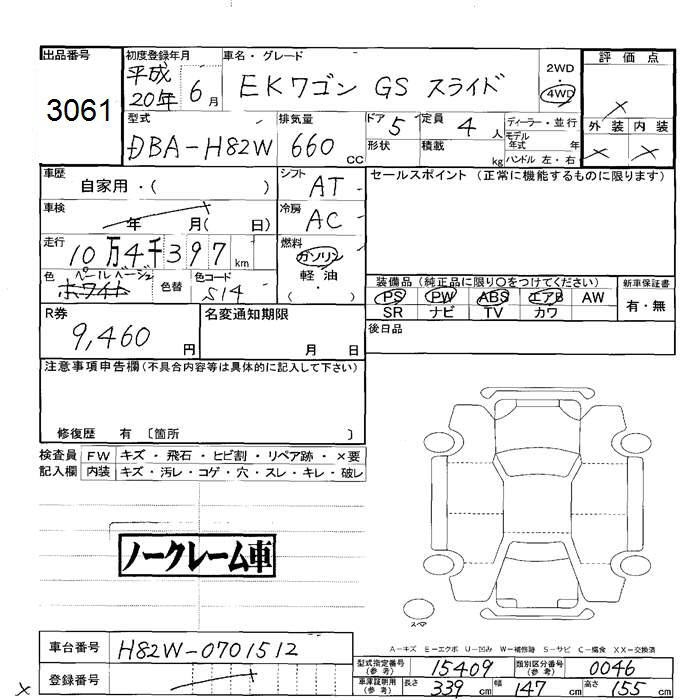 出品番号
3061
初度登録年月
平成20年 6月
車名・グレード
EKワゴン GS スライド
2WD
・
4WD
評価点
×
外装 内装
× ×
型式
DBA-H82W
排気量
660 CC
ドア 5
形状
定員 4 人
積載 kg
ディーラー・並行
モデル年式 年
ハンドル 左・右
車歴
自家用・( )
シフト
AT
セールスポイント (正常に機能するものに限ります)
車検
年 月( 日)
冷房
AC
走行
10万4千397 km
燃料
ガソリン
軽油
・
( )
色 ペールベージュ
ホワイト
色替
色コード
S14
装備品 (純正品に限り○をつけてください)
PS PW ABS エアB AW
SR ナビ TV カワ
新車保証書
有・無
後日品
R券
9,460 円
名変通知期限
月 日
注意事項申告欄(不具合内容等は具体的に記入して下さい)
修復歴 有 〔箇所 〕
検査員記入欄
FW キズ・飛石・ヒビ割・リペア跡・×要
内装 キズ・汚レ・コゲ・穴・スレ・キレ・破レ
ノークレーム車
スペア
A-キズ E-エクボ U-凹み W-補修跡 S-サビ C-腐食 XX-交換済
車台番号 H82W-0701512
登録番号
×
型式指定番号(参考) 15409 類別区分番号(参考) 0046
車庫証明用(参考) 長さ 339 cm 幅 147 cm 高さ 155 cm